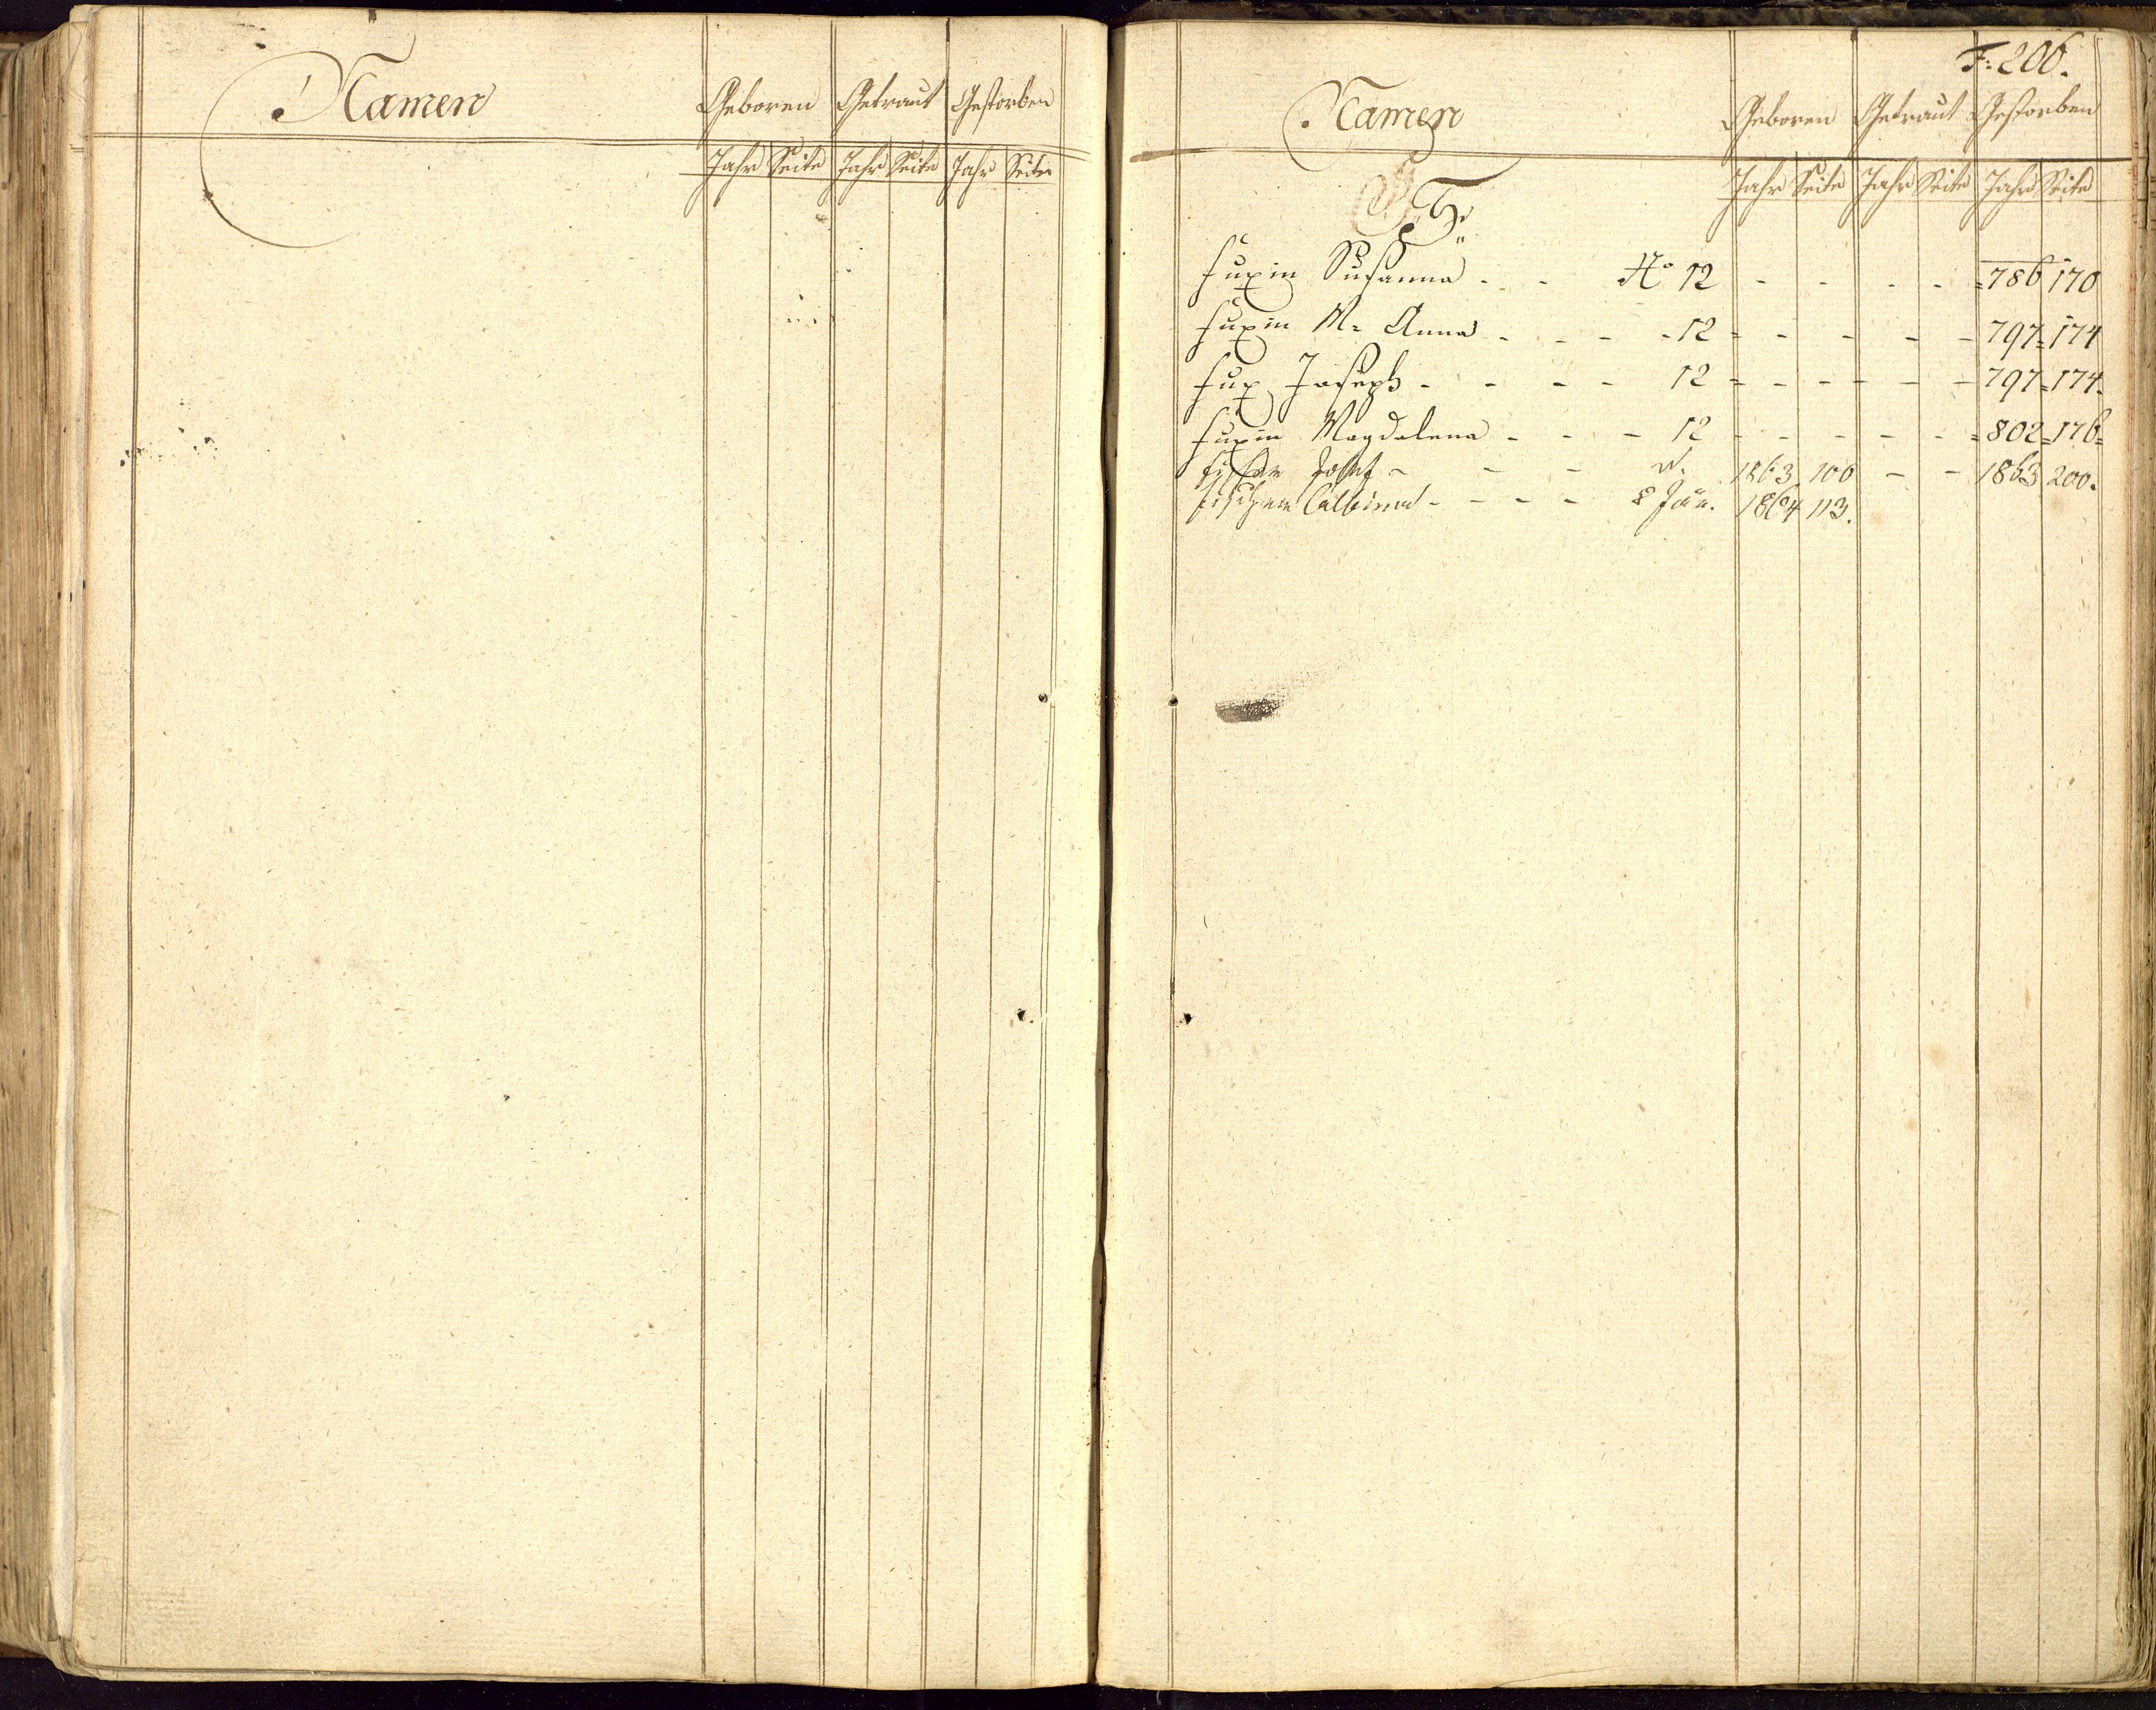 Namen Geboren Getraut Gestorben
Jahr Seite Jahr Seite Jahr Seite
F: 206.
Namen Geboren Getraut Gestorben
Jahr Seite Jahr Seite Jahr Seite
F.
Fuxin Susanna - - No 12 - - - - 786 170
Fuxin M= Anna - - - - 12 - - - - - 797= 174
Fux Joseph - - - - 12 - - - - - - 797= 174.
Fuxin Magdalena - - - 12 - - - - - = 802= 176=
Fischer Josef - - - 1863 106 - - 1863 200.
Fischer Albina - - - - 8 Jän. 1864 113.